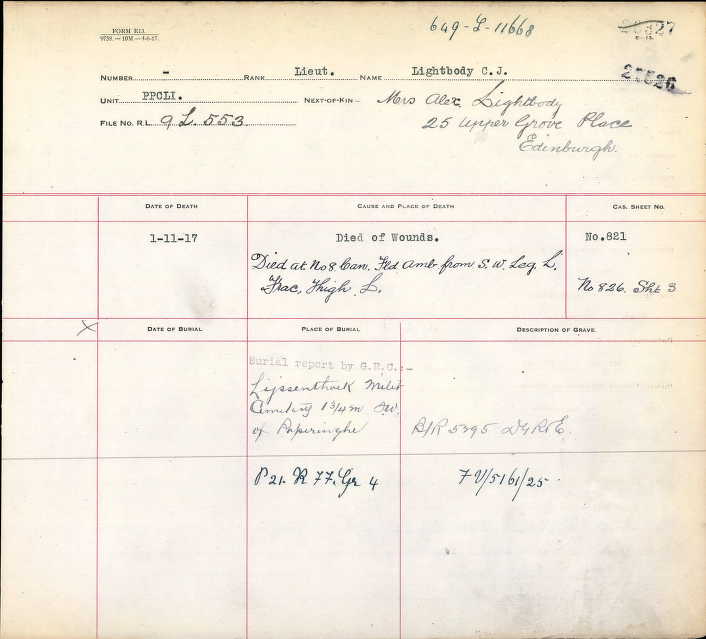 FORM R13.
9739.—10M—4-6-17.
649-L-11668
NUMBER - RANK Lieut. NAME Lightbody C.J.
UNIT PPCLI. NEXT-OF-KIN— Mrs Alex. Lightbody
FILE NO. R.L. 9 L. 553 25 Upper Grove Place
Edinburgh.
DATE OF DEATH CAUSE AND PLACE OF DEATH CAS. SHEET NO.
1-11-17 Died of Wounds. No.821
Died at No 8 Can. Fld Amb from S.W. Leg L.
Frac. Thigh L. No 826. Sht 3
X DATE OF BURIAL PLACE OF BURIAL DESCRIPTION OF GRAVE.
Burial report by G.R.C.:-
Lijssenthoek Milit
Cemetery 1 3/4 m SW.
of Poperinghe B/R 5395 DGR&E.
P 21. R 77. Gr 4 7 V/5161/25